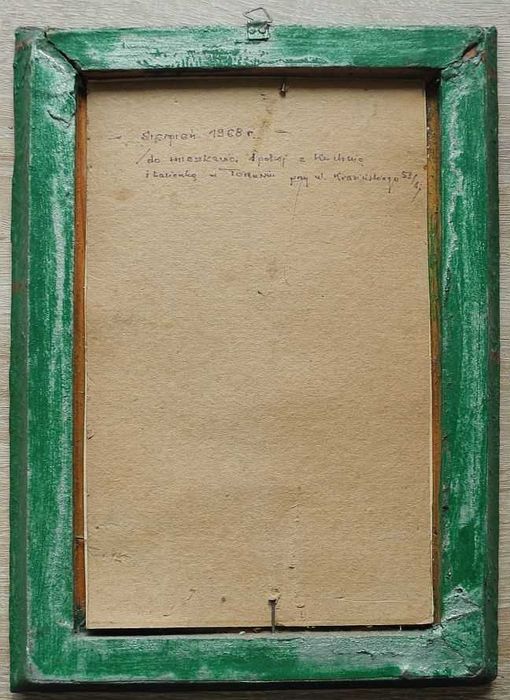 Sierpień 1968 r.
do mieszkania, 1 pokój z kuchnią
i łazienką w Toruniu przy ul. Krasińskiego 53/